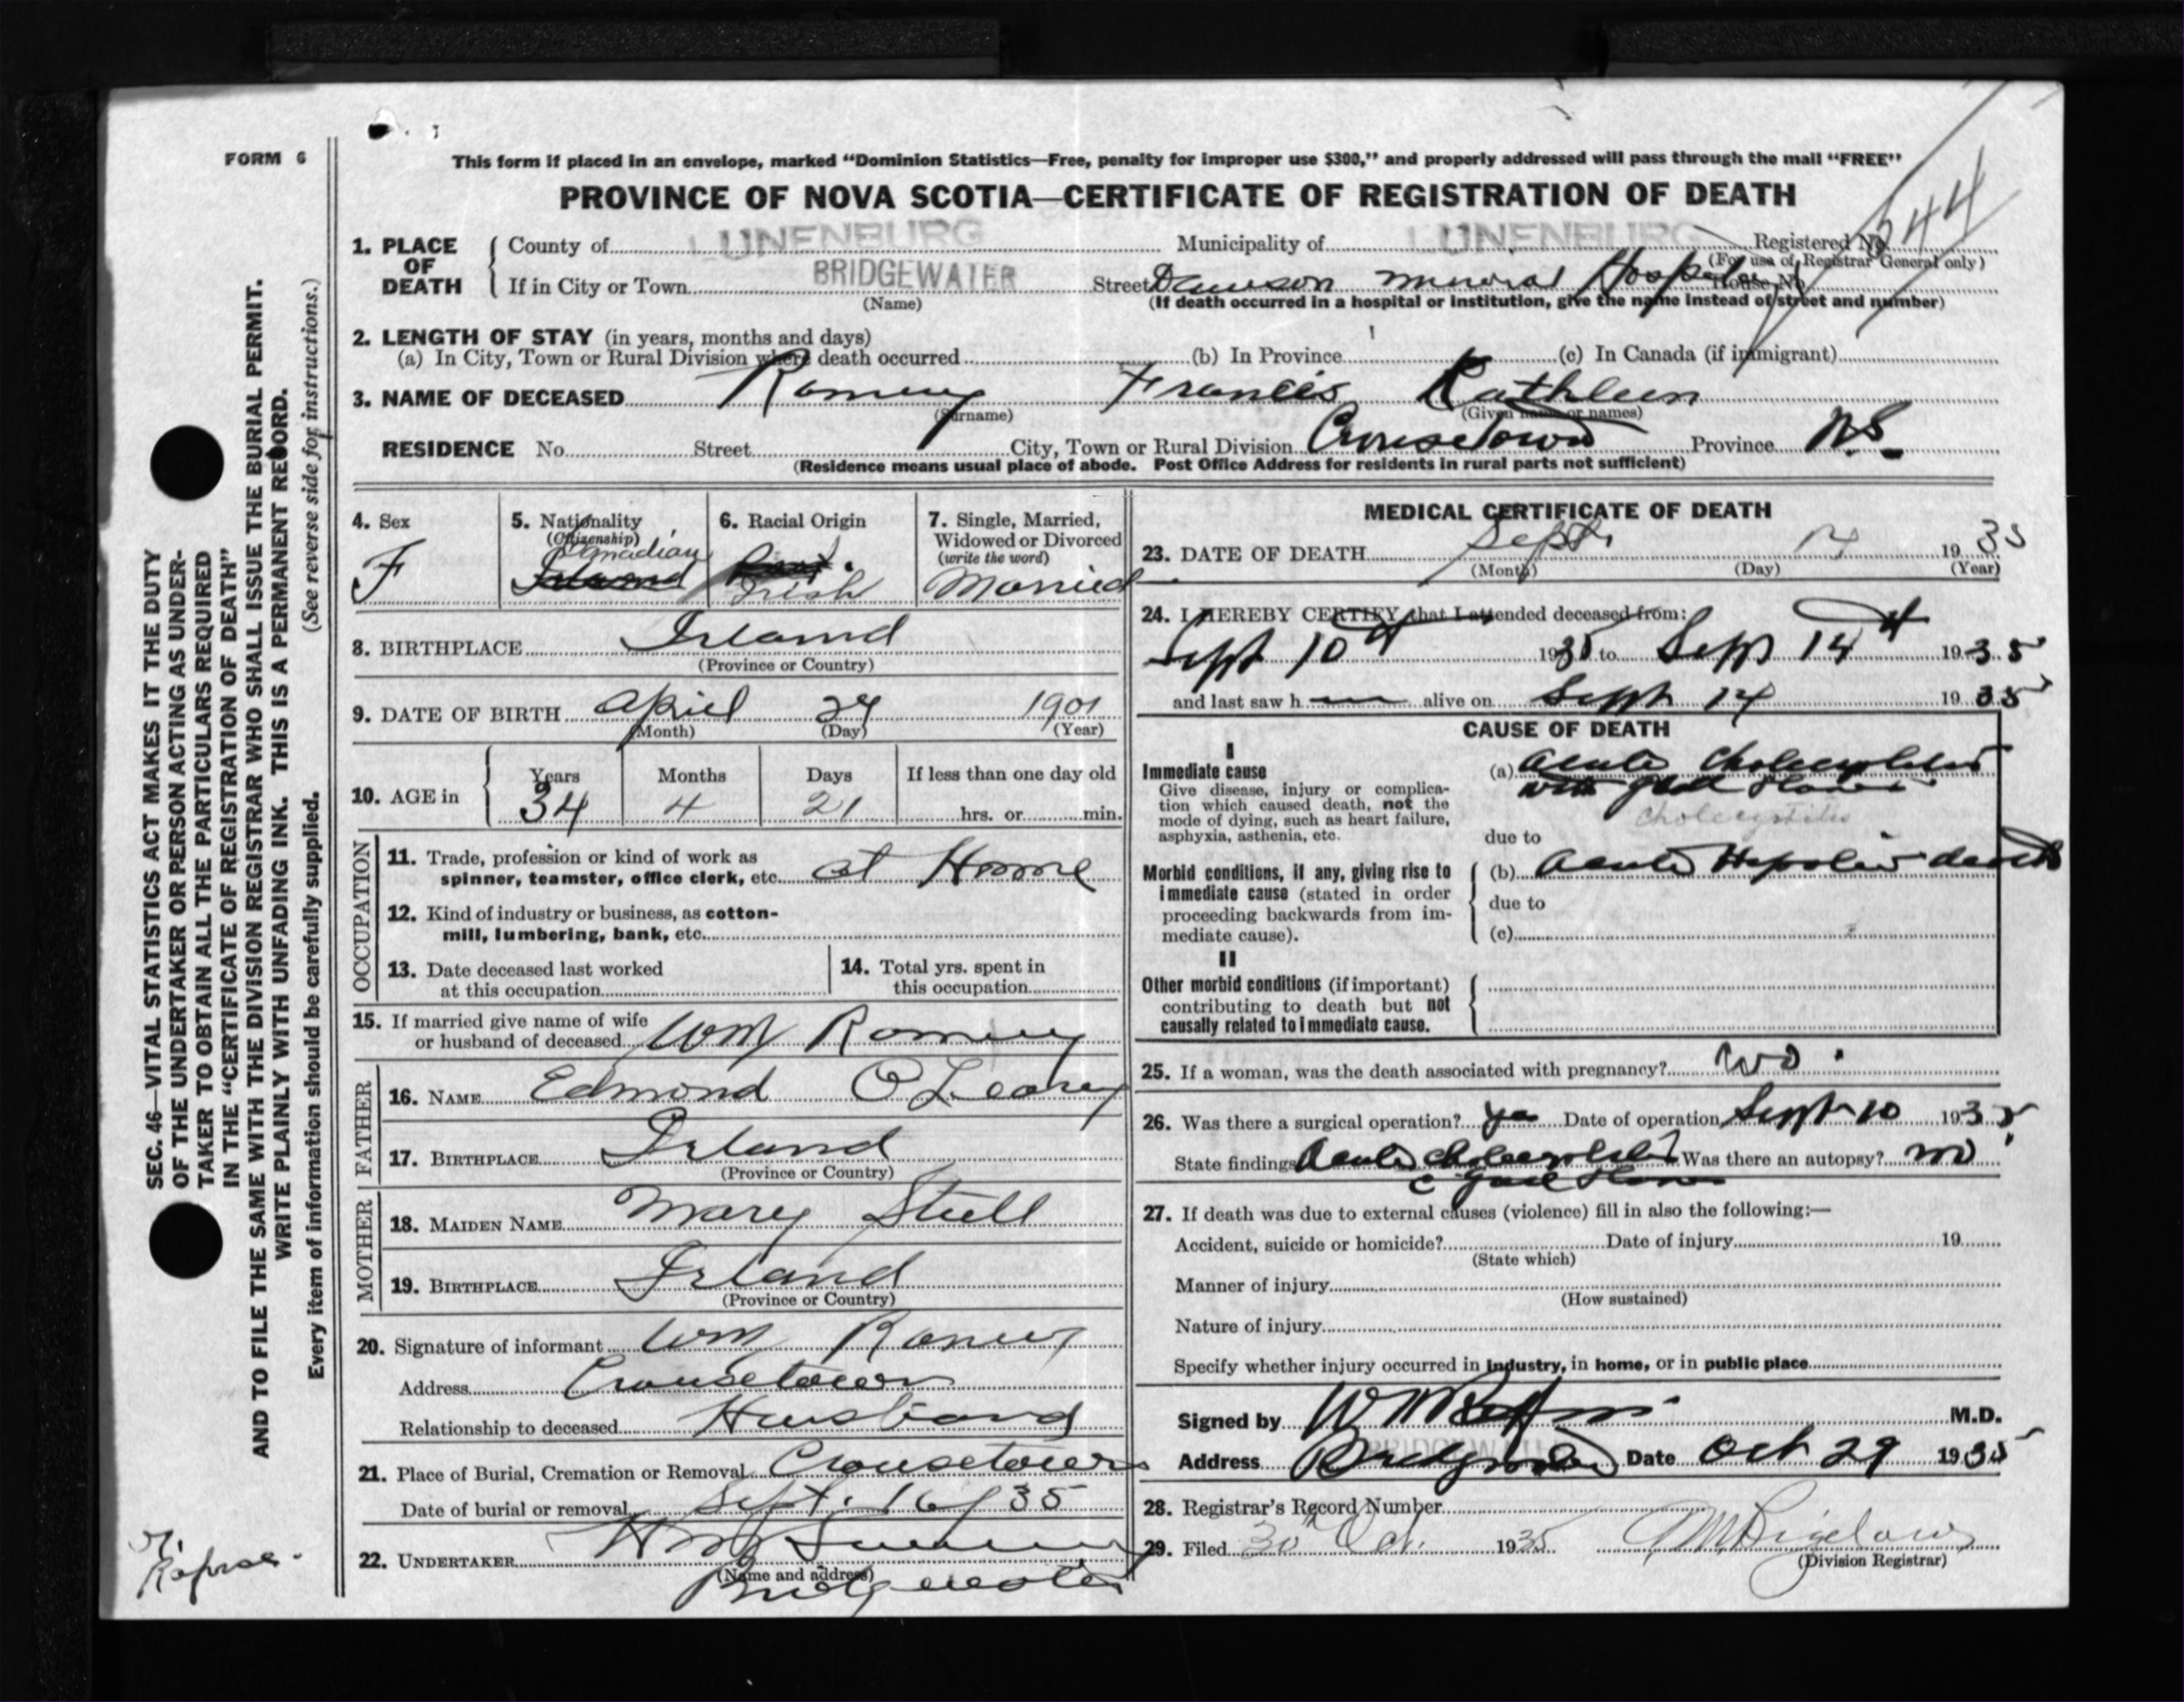 FORM 6
This form if placed in an envelope, marked “Dominion Statistics—Free, penalty for improper use $300,” and properly addressed will pass through the mail “FREE”
PROVINCE OF NOVA SCOTIA—CERTIFICATE OF REGISTRATION OF DEATH
SEC. 46—VITAL STATISTICS ACT MAKES IT THE DUTY
OF THE UNDERTAKER OR PERSON ACTING AS UNDER-
TAKER TO OBTAIN ALL THE PARTICULARS REQUIRED
IN THE “CERTIFICATE OF REGISTRATION OF DEATH”
AND TO FILE THE SAME WITH THE DIVISION REGISTRAR WHO SHALL ISSUE THE BURIAL PERMIT.
WRITE PLAINLY WITH UNFADING INK. THIS IS A PERMANENT RECORD.
Every item of information should be carefully supplied. (See reverse side for instructions.)
1. PLACE OF DEATH County of LUNENBURG Municipality of LUNENBURG Registered No. 544
(For use of Registrar General only)
If in City or Town BRIDGEWATER Street Dawson Memorial Hospital House No.
(Name) (If death occurred in a hospital or institution, give the name instead of street and number)
2. LENGTH OF STAY (in years, months and days)
(a) In City, Town or Rural Division where death occurred (b) In Province (c) In Canada (if immigrant)
3. NAME OF DECEASED Romney Francis Kathleen
(Surname) (Given name or names)
RESIDENCE No. Street City, Town or Rural Division Crousetown Province N.S.
(Residence means usual place of abode. Post Office Address for residents in rural parts not sufficient)
4. Sex F
5. Nationality (Citizenship) Canadian
6. Racial Origin Irish
7. Single, Married, Widowed or Divorced (write the word) Married
8. BIRTHPLACE Irland
(Province or Country)
9. DATE OF BIRTH April 24 1901
(Month) (Day) (Year)
10. AGE in Years 34 Months 4 Days 21 If less than one day old hrs. or min.
OCCUPATION
11. Trade, profession or kind of work as
spinner, teamster, office clerk, etc. at Home
12. Kind of industry or business, as cotton-
mill, lumbering, bank, etc.
13. Date deceased last worked
at this occupation
14. Total yrs. spent in
this occupation
15. If married give name of wife
or husband of deceased Wm Romney
FATHER
16. NAME Edmond O Leary
17. BIRTHPLACE Irland
(Province or Country)
MOTHER
18. MAIDEN NAME Mary Stull
19. BIRTHPLACE Irland
(Province or Country)
20. Signature of informant Wm Romney
Address Crousetown
Relationship to deceased Husband
21. Place of Burial, Cremation or Removal Crousetown
Date of burial or removal Sept. 16/35
22. UNDERTAKER
(Name and address)
Bridgewater
MEDICAL CERTIFICATE OF DEATH
23. DATE OF DEATH Sept. 14 1935
(Month) (Day) (Year)
24. I HEREBY CERTIFY that I attended deceased from:
Sept 10th 1935 to Sept 14th 1935
and last saw h alive on Sept 14 1935
CAUSE OF DEATH
I
Immediate cause
Give disease, injury or complica-
tion which caused death, not the
mode of dying, such as heart failure,
asphyxia, asthenia, etc.
(a) Acute Cholecystitis
with Gall Stones
cholecystitis
due to
Morbid conditions, if any, giving rise to
immediate cause (stated in order
proceeding backwards from im-
mediate cause).
(b) Acute Hepatic death
due to
(c)
II
Other morbid conditions (if important)
contributing to death but not
causally related to immediate cause.
25. If a woman, was the death associated with pregnancy? No.
26. Was there a surgical operation? yes Date of operation Sept 10 1935
State findings Acute Cholecystitis Was there an autopsy? no
c Gall Stones
27. If death was due to external causes (violence) fill in also the following:—
Accident, suicide or homicide? Date of injury 19
(State which)
Manner of injury
(How sustained)
Nature of injury
Specify whether injury occurred in industry, in home, or in public place
Signed by M.D.
Address BRIDGEWATER Bridgewater Date Oct 29 1935
28. Registrar's Record Number
29. Filed 30th Oct. 1935 Bigelow
(Division Registrar)